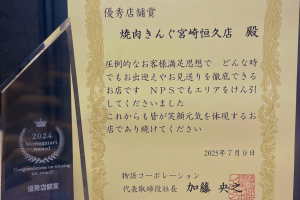 優秀店舗賞
焼肉きんぐ宮崎恒久店 殿
圧倒的なお客様満足思想で どんな時
でもお出迎えやお見送りを徹底できる
お店です NPSでもエリアをけん引
してくださいました
これからも皆が笑顔元気を体現するお
店であり続けてください
2025年7月9日
物語コーポレーション
代表取締役社長 加藤 央之
2024
Monogatari
Award
Congratulations on winning
the award!
優秀店舗賞